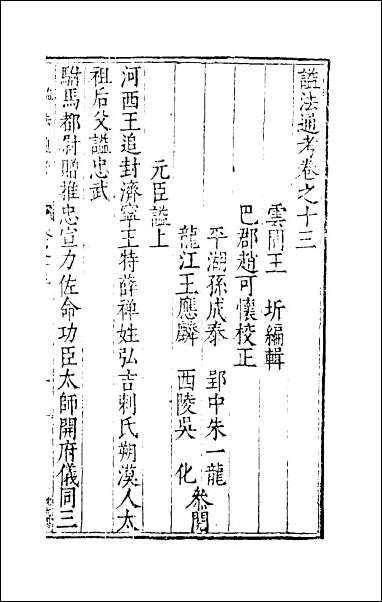 謚法通考卷之十三
雲間王　圻編輯
巴郡趙可懷校正
平湖孫成泰　郢中朱一龍
龍江王應麟　西陵吳　化　參閱
元臣謚上
河西王追封濟寧王特薛禅姓弘吉剌氏朔漠人太
祖后父謚忠武
駙馬都尉贈推忠宣力佐命功臣太師開府儀同三